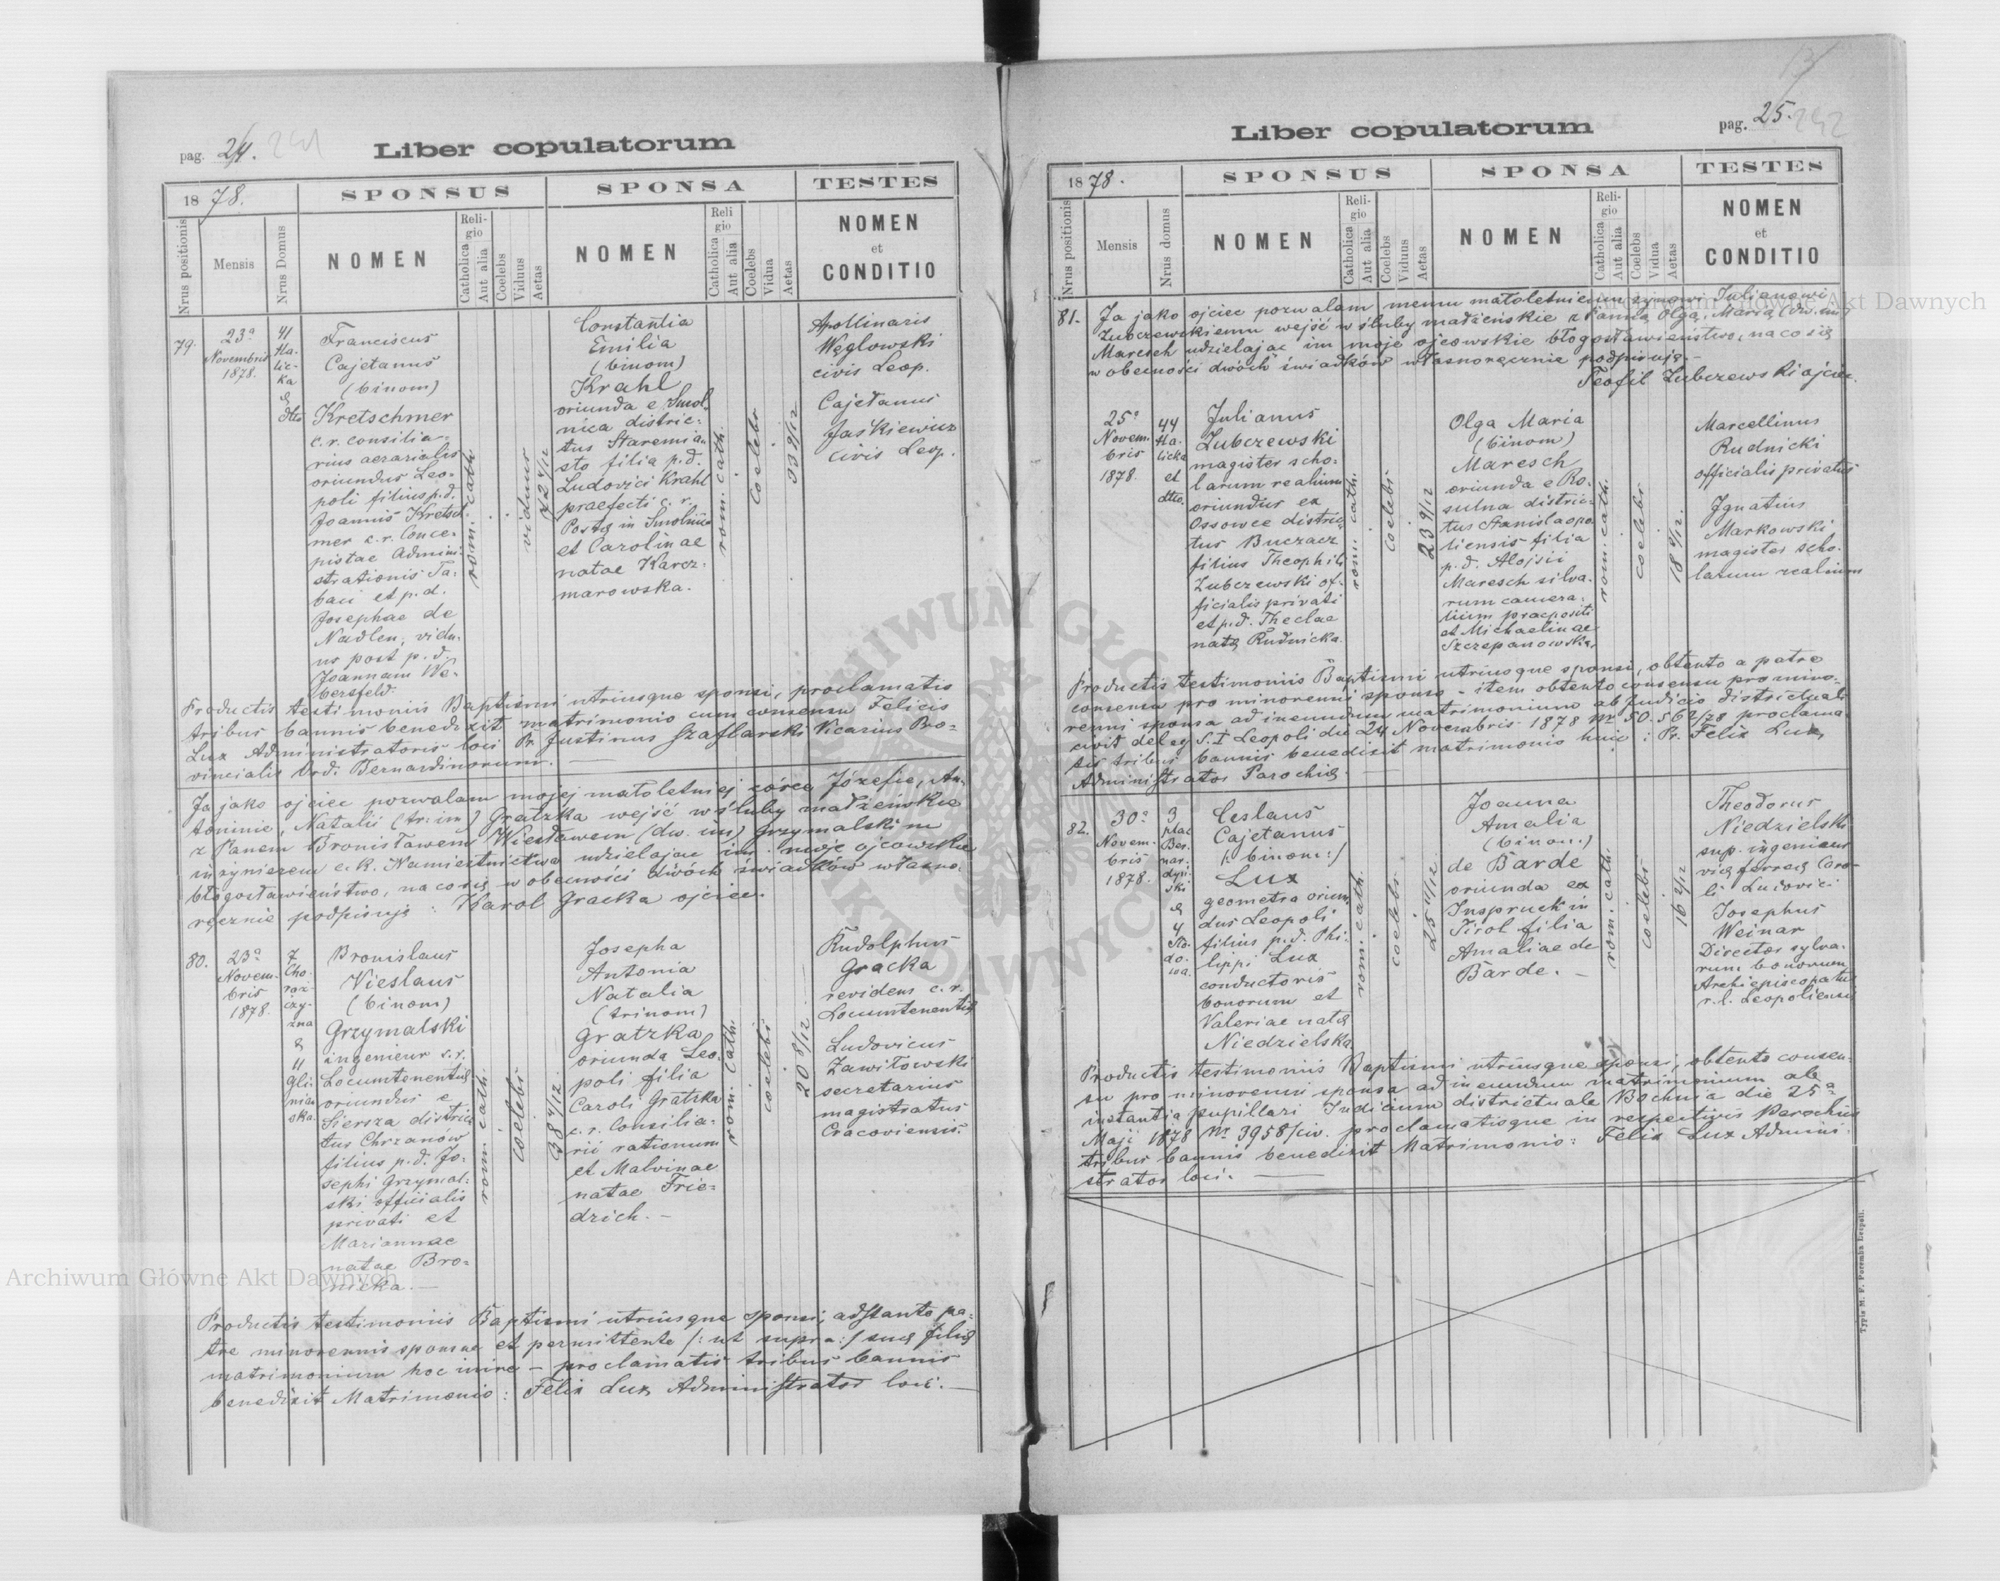 pag. 24. 241
Liber copulatorum
1878.
SPONSUS
SPONSA
TESTES
Nrus positionis
Mensis
Nrus Domus
NOMEN
Religio
Catholica
Aut alia
Coelebs
Viduus
Aetas
NOMEN
Religio
Catholica
Aut alia
Coelebs
Vidua
Aetas
NOMEN
et
CONDITIO
79.
23a
Novembris
1878.
41
Ha-
lic-
ka
&
dtto
Franciscus
Cajetanus
(binom)
Kretschmer
c. r. consilia-
rius aerarialis
oriundus Leo-
poli filius p. d.
Joannis Kretsch
mer c. r. Conce-
pistae Admini
strationis Ta-
baci et p. d.
Josephae de
Nadlen, vidu-
us post p. d.
Joannam We-
bersfeld.
rom. cath.
viduus
72 4/12
Constantia
Emilia
(binom)
Krahl
oriunda e Smol-
nica distric-
tus Staremia-
sto filia p. d.
Ludovici Krahl
praefecti c. r.
Postę in Smolnica
et Carolinae
natae Karcz-
marowska.
rom. cath.
coelebs
33 9/12
Apollinaris
Węglowski
civis Leop.
Cajetanus
Jaskiewicz
civis Leop.
Productis testimoniis Baptismi utriusque sponsi, proclamatis
tribus bannis benedixit matrimonio cum consensu Felicis
Lux Administratoris loci Pr. Justinus Szaflarski Vicarius Pro-
vincialis Ord. Bernardinorum.
Ja jako ojciec pozwalam mojej małoletniej córce Józefie, An-
toninie, Natalii (tr: im) Gratzka wejść w śluby małżeńskie
z Panem Bronisławem Wiesławem (dw. im) Grzymalskim
inżynierem c. k. Namiestnictwa udzielając im moje ojcowskie
błogosławieństwo, na co się w obecności dwóch świadków własno-
ręcznie podpisuję: Karol Gracka ojciec.
80.
23a
Novem-
bris
1878.
7
Cho-
roż-
czy-
zna
&
11
Gli-
niań
ska.
Bronislaus
Vieslaus
(binom)
Grzymalski
ingenieur c. r.
Locumtenentię
oriundus e
Siersza distric
tus Chrzanow
filius p. d. Jo-
sephi Grzymal-
ski officialis
privati et
Mariannae
natae Bro-
nicka.
rom. cath.
coelebs
38 4/12.
Josepha
Antonia
Natalia
(trinom)
Gratzka
oriunda Leo-
poli filia
Caroli Gratzka
c. r. Consilia-
rii rationum
et Malvinae
natae Frie-
drich.
rom. cath.
coelebs
20 8/12
Rudolphus
Gracka
revidens c. r.
Locumtenentię
Ludovicus
Zawiłowski
secretarius
magistratus
Cracoviensis.
Productis testimoniis Baptismi utriusque sponsi, adstante pa-
tre minorennis sponsae et permittente /: ut supra :/ suę filię
matrimonium hoc inire - proclamatis tribus bannis
benedixit Matrimonio: Felix Lux Administrator loci.
pag. 25. 242
Liber copulatorum
1878.
SPONSUS
SPONSA
TESTES
Nrus positionis
Mensis
Nrus domus
NOMEN
Religio
Catholica
Aut alia
Coelebs
Viduus
Aetas
NOMEN
Religio
Catholica
Aut alia
Coelebs
Vidua
Aetas
NOMEN
et
CONDITIO
81.
Ja jako ojciec pozwalam memu małoletniemu synowi Julianowi
Zubczewskiemu wejść w śluby małżeńskie z Panną Olgą, Marią (dw. im)
Maresch udzielając im moje ojcowskie błogosławieństwo, na co się
w obecności dwóch świadków własnoręcznie podpisuję.
Teofil Zubczewski ojciec.
25a
Novem-
bris
1878.
44
Ha-
licka
et
dtto.
Julianus
Zubczewski
magister scho-
larum realium
oriundus ex
Ossowce distric
tus Buczacz
filius Theophili
Zubczewski of-
ficialis privati
et p. d. Theclae
natę Rudnicka.
rom. cath.
coelebs
23 9/12
Olga Maria
(binom)
Maresch
oriunda e Ro-
sulna distric-
tus Stanislaopo-
liensis filia
p. d. Alojsii
Maresch silva-
rum camera-
lium praepositi
et Michaelinae
Szczepanowska.
rom. cath.
coelebs
18 4/12.
Marcellinus
Rudnicki
officialis privatus
Ignatius
Markowski
magister scho-
larum realium
Productis testimoniis Baptismi utriusque sponsi, obtento a patre
consensu pro minorenni sponso - item obtento consensu pro mino-
renni sponsa ad ineundum matrimonium ab Judicio districtuali
civit. deleg S. I Leopoli die 24 Novembris 1878 Nr 50.562/78 proclama
tis tribus bannis benedixit matrimonio huic: Pr. Felix Lux,
Administrator Parochię.
82.
30a
Novem-
bris
1878.
3
plac
Ber-
nar-
dyń-
ski
&
4
Ko-
do-
wa.
Ceslaus
Cajetanus
/: binom :/
Lux
geometra oriun
dus Leopoli
filius p. d. Phi-
lippi Lux
conductoris
bonorum et
Valeriae natę
Niedzielska
rom. cath.
coelebs
25 11/12
Joanna
Amalia
(binom)
de Barde
oriunda ex
Inspruck in
Tirol filia
Amaliae de
Barde.
rom. cath.
coelebs
16 2/12
Theodorus
Niedzielski
sup. ingenieur
vię ferreę Caro-
li Ludovici
Josephus
Weinar
Director sylva-
rum bonorum
Archiepiscopatus
r. l. Leopoliensis
Productis testimoniis Baptismi utriusque sponsi, obtento consen-
su pro minorenni sponsa ad ineundum matrimonium ab
instantia pupillari Judicium districtuale Bochnia die 25a
Maji 1878 Nr. 3958/civ. proclamatisque in respectivis Parochiis
tribus bannis benedixit Matrimonio: Felix Lux Admini-
strator loci.
Typis M. F. Poremba Leopoli.
Archiwum Główne Akt Dawnych
Archiwum Główne Akt Dawnych
ARCHIWUM GŁÓWNE AKT DAWNYCH